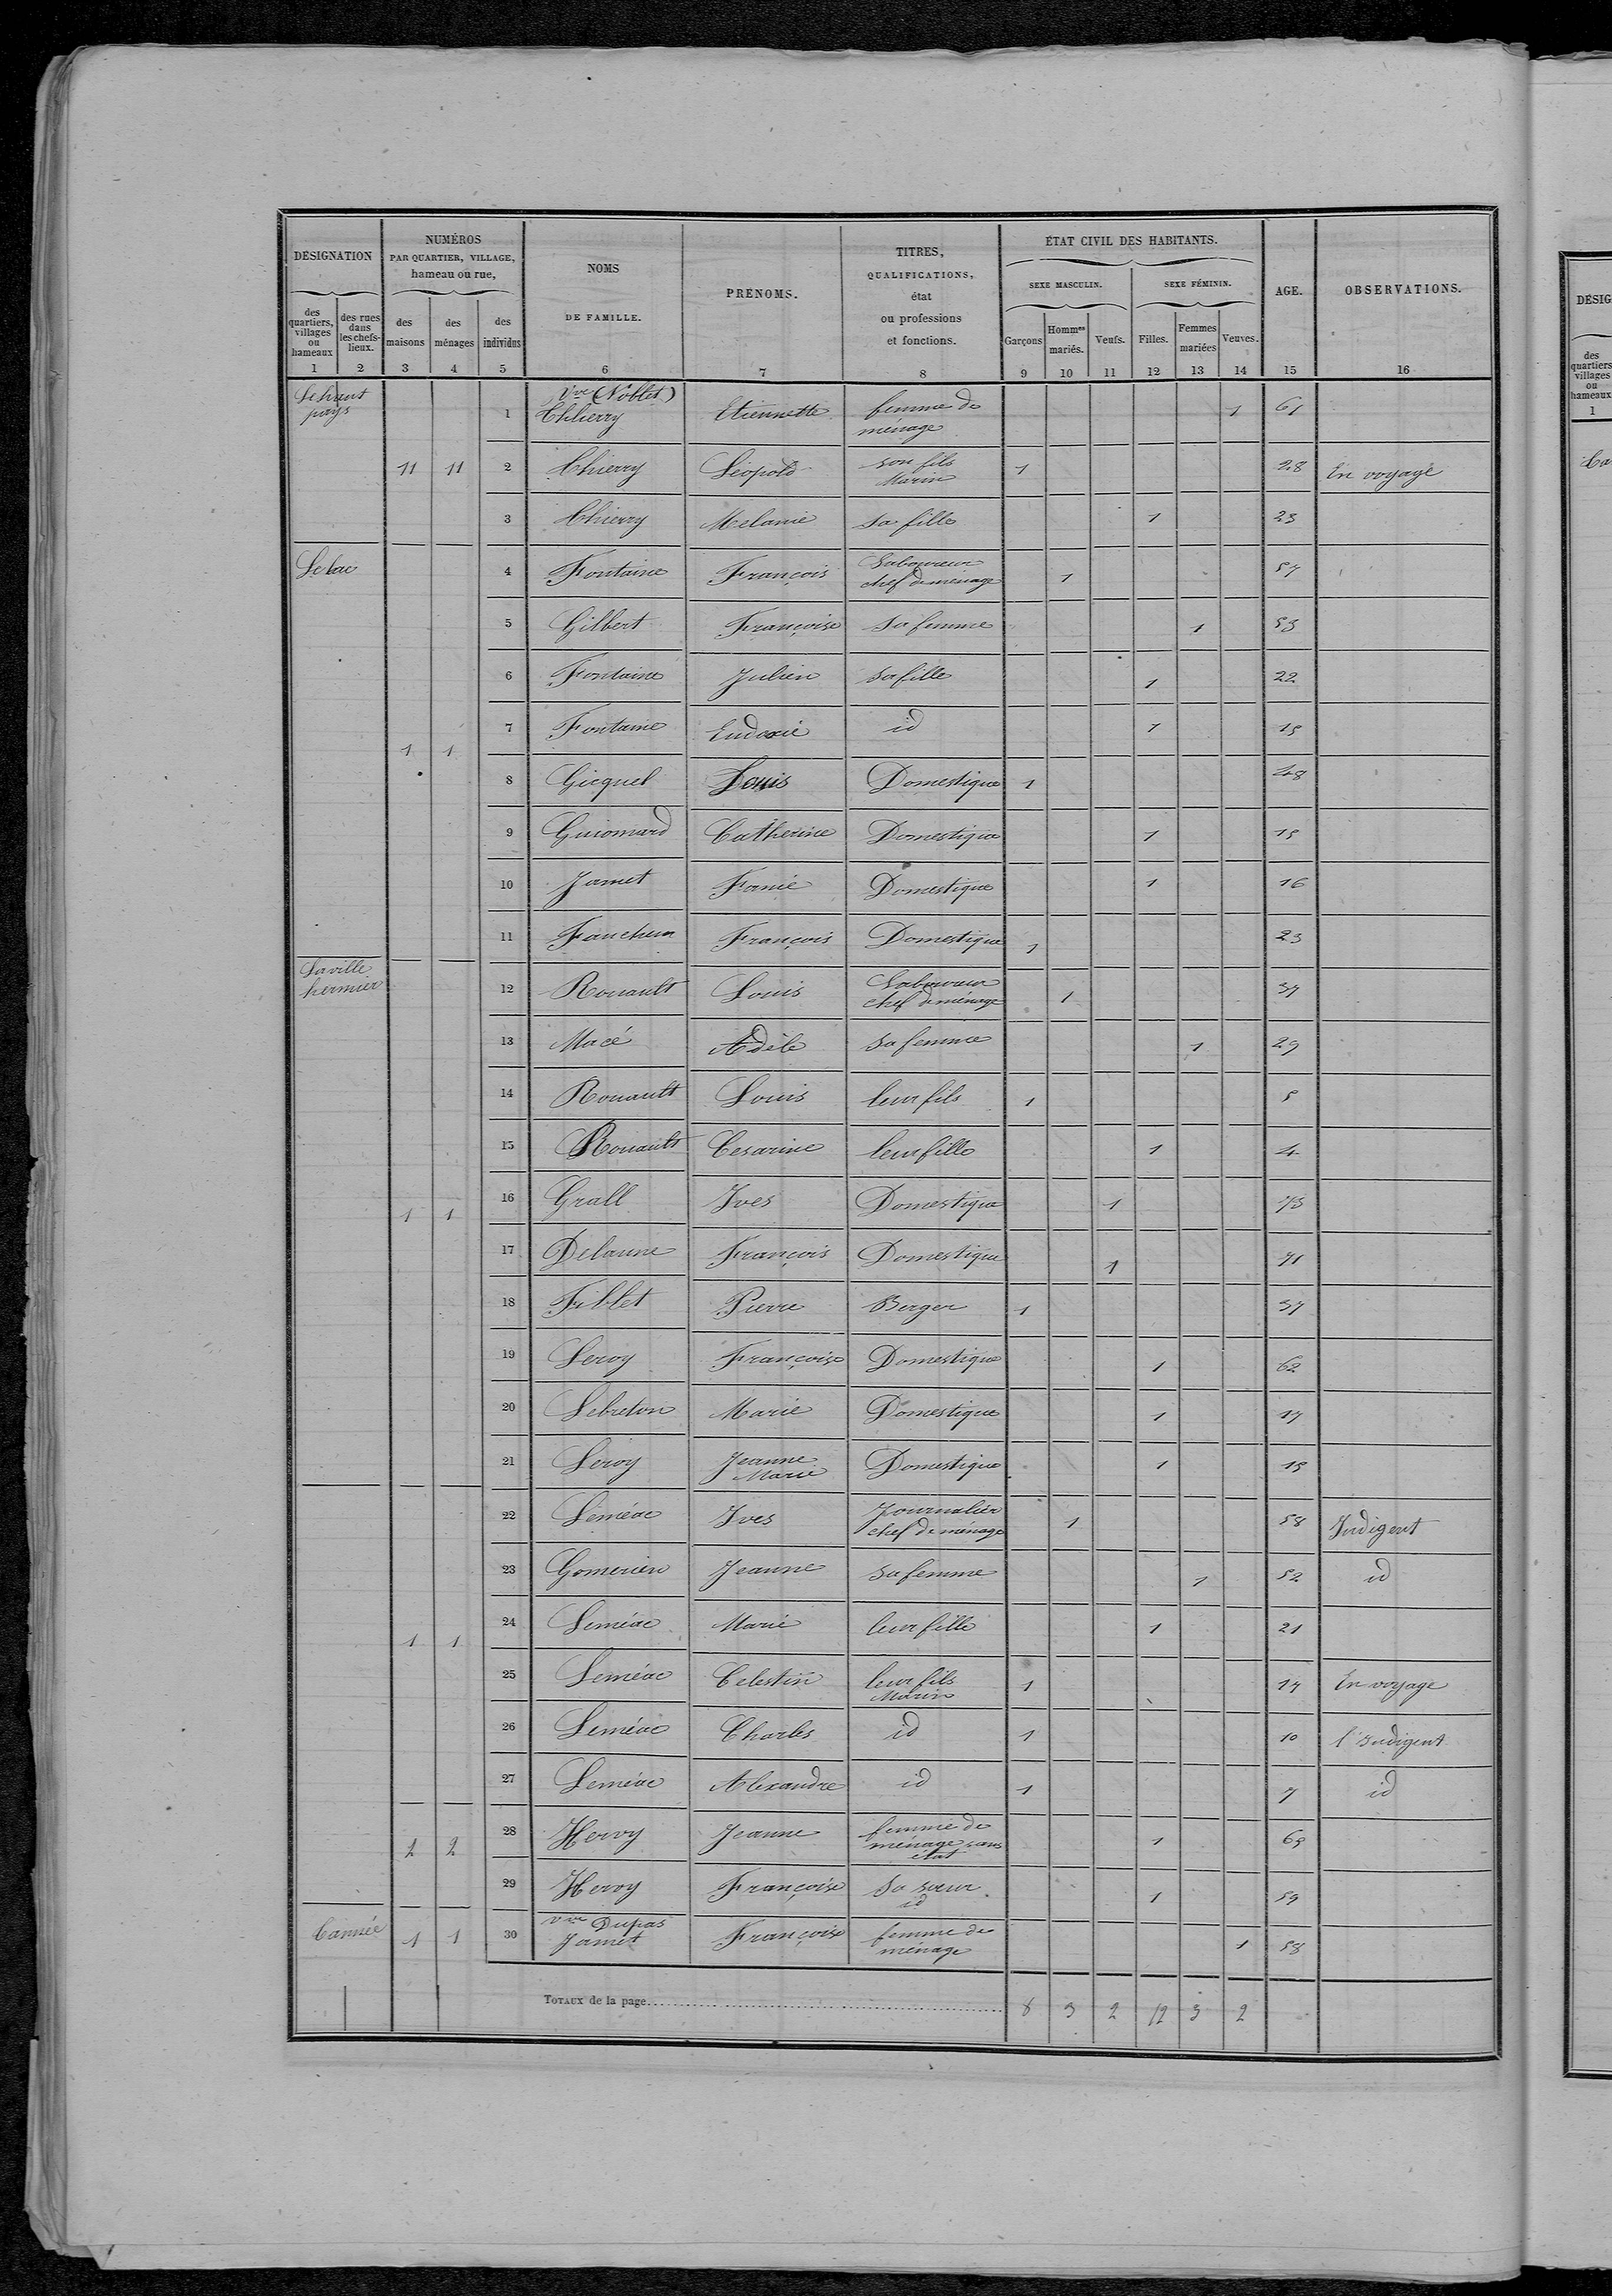 DÉSIGNATION
NUMÉROS PAR QUARTIER, VILLAGE, hameau ou rue,
NOMS DE FAMILLE.
PRÉNOMS.
TITRES, QUALIFICATIONS, état ou professions et fonctions.
ÉTAT CIVIL DES HABITANTS.
SEXE MASCULIN. SEXE FÉMININ.
AGE.
OBSERVATIONS.
des quartiers, villages ou hameaux
des rues dans les chefs-lieux.
des maisons
des ménages
des individus
Garçons Hommes mariés. Veufs. Filles. Femmes mariées Veuves.
1 2 3 4 5 6 7 8 9 10 11 12 13 14 15 16
Lehaut pays 1 Vve (Noblet) Thierry Etiennette femme de ménage 1 61
11 11 2 Thierry Léopold son fils Marin 1 28 En voyage
3 Thierry Melanie sa fille 1 23
Lelac 4 Fontaine François Laboureur chef de menage 1 57
5 Gilbert Françoise sa femme 1 53
6 Fontaine Julien sa fille 1 22
1 1 7 Fontaine Eudoxie id 1 15
8 Gicquel Louis Domestique 1 48
9 Guiomard Catherine Domestique 1 15
10 Jamet Fanie Domestique 1 16
11 Faucheux François Domestique 1 23
Laville hermier 12 Rouault Louis Laboureur chef de ménage 1 37
13 Macé Adèle sa femme 1 29
14 Rouault Louis leur fils 1 5
15 Rouault Cesarine leur fille 1 4
1 1 16 Grall Yves Domestique 1 73
17 Delaune François Domestique 1 71
18 Fiblet Pierre Berger 1 37
19 Leroy Françoise Domestique 1 62
20 Lebreton Marie Domestique 1 17
21 Leroy Jeanne Marie Domestique 1 15
22 Leméac Yves Journalier chef de ménage 1 58 Indigent
23 Gomerien Jeanne sa femme 1 52 id
1 1 24 Leméac Marie leur fille 1 21
25 Leméac Celestin leur fils Marin 1 17 En voyage
26 Leméac Charles id 1 10 Indigent
27 Leméac Alexandre id 1 7 id
2 2 28 Hervy Jeanne femme de ménage sans état 1 65
29 Hervy Françoise Sa sœur id 1 59
Cannée 1 1 30 Vve Dupas Jamet Françoise femme de ménage 1 58
TOTAUX de la page 8 3 2 12 3 2
DÉSIG
des quartiers villages ou hameaux
1
Ca